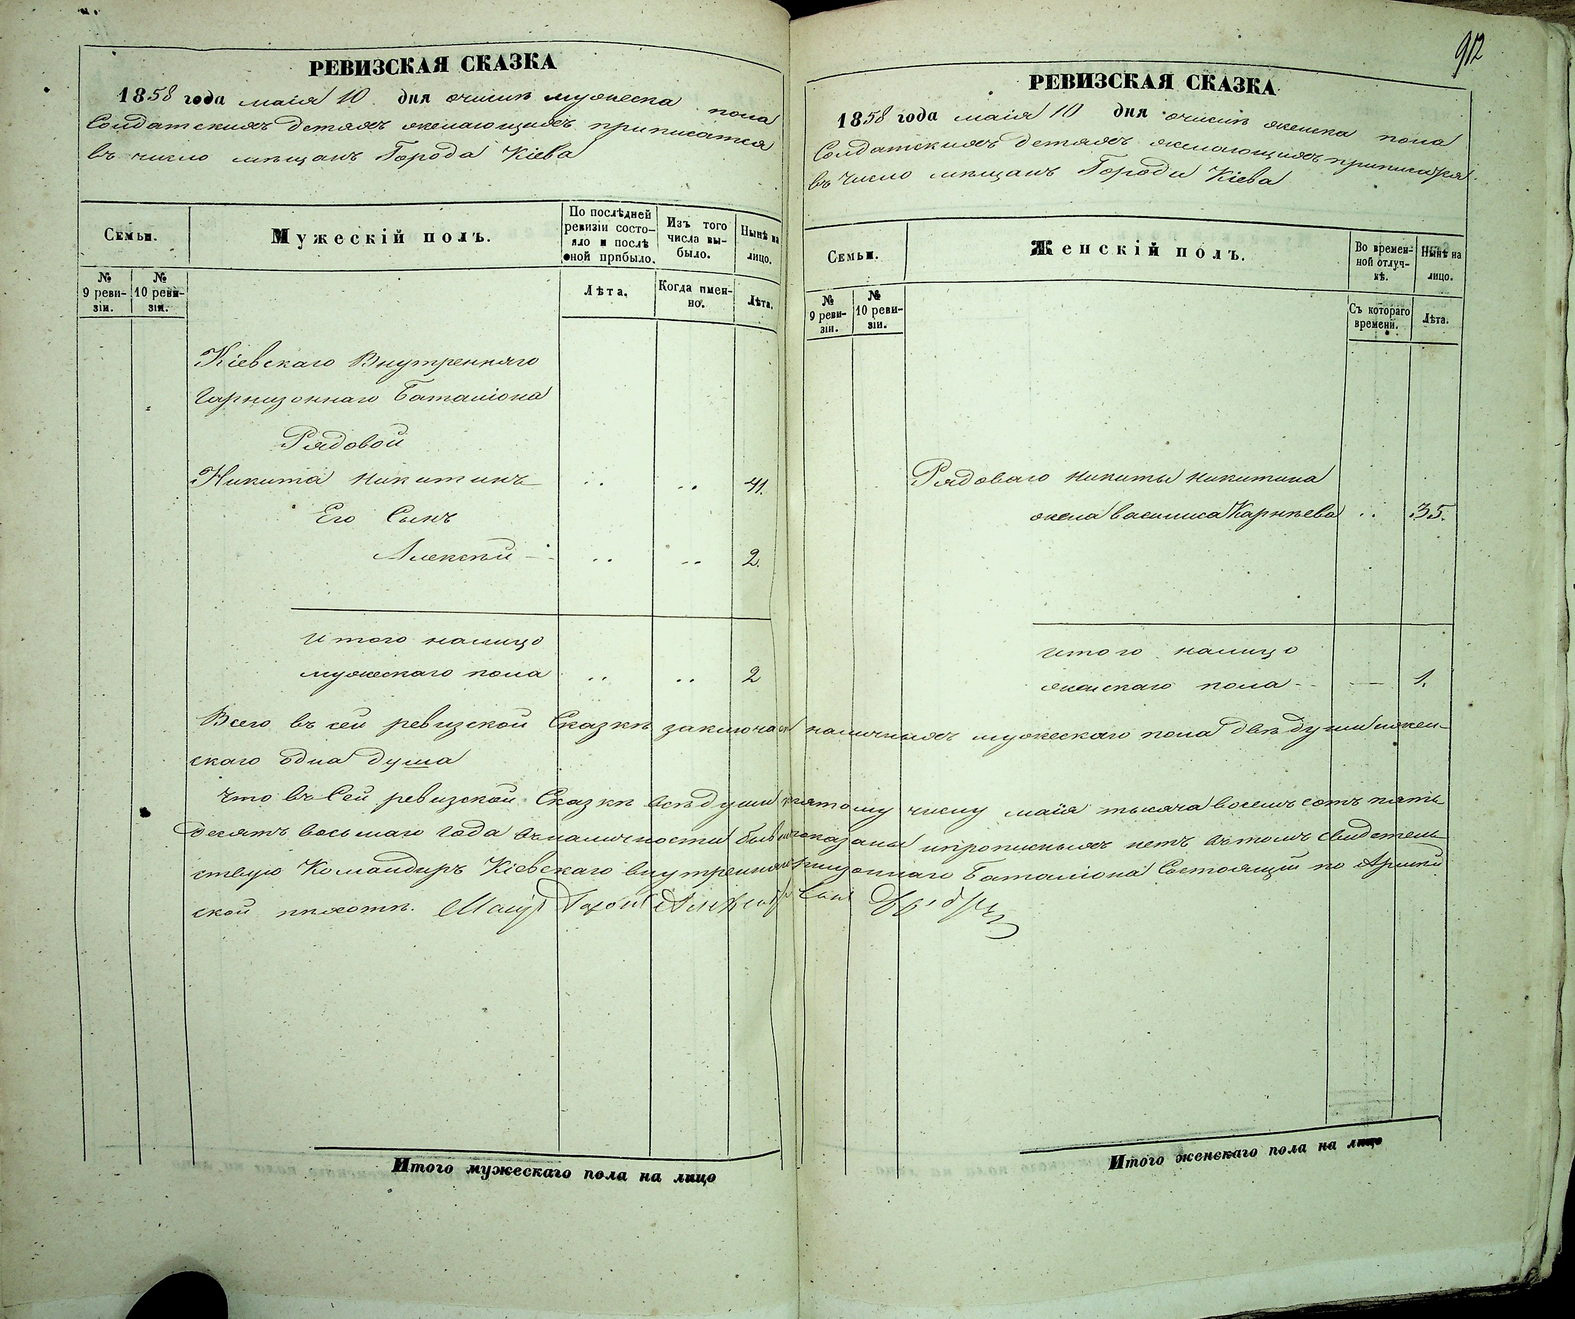 912
РЕВИЗСКАЯ СКАЗКА
1858 года маія 10 дня о числѣ мужеска пола
Солдатскихъ детяхъ желающихъ приписатся
въ число мѣщанъ Города Кіева
Семьи.
Мужескій полъ.
По послѣдней ревизіи состояло и послѣ оной прибыло.
Изъ того числа выбыло.
Нынѣ на лицо.
№ 9 ревизіи.
№ 10 ревизіи.
Лѣта.
Когда именно.
Лѣта.
Кіевскаго Внутренняго
Гарнизоннаго Баталіона
Рядовой
Никита Никитинъ .. .. 41.
Его Сынъ
Алексѣй .. .. 2.
Итого налицо
мужескаго пола .. .. 2
РЕВИЗСКАЯ СКАЗКА
1858 года маія 10 дня о числѣ женска пола
Солдатскихъ детяхъ желающихъ
въ число мѣщанъ Города Кіева
Семьи.
Женскій полъ.
Во временной отлучкѣ.
Нынѣ на лицо.
№ 9 ревизіи.
№ 10 ревизіи.
Съ котораго времени.
Лѣта.
Рядоваго Никиты Никитина
жена Василиса Карнѣева .. 35.
Итого налицо
женскаго пола — 1.
Всего въ сей ревизской Сказкѣ наличныхъ мужескаго пола двѣ души и жен-
скаго одна душа
Что въ Сей ревизской Сказкѣ всѣ души числу маія тысяча восемь сотъ пять
десятъ восьмаго года въ наличности показаны и прописныхъ нетъ въ томъ свидетель-
ствую Командиръ Кіевскаго внутренняго Гарнизоннаго Баталіона Состоящій по Армей
ской пѣхотѣ.
Итого мужескаго пола на лицо
Итого женскаго пола на лицо